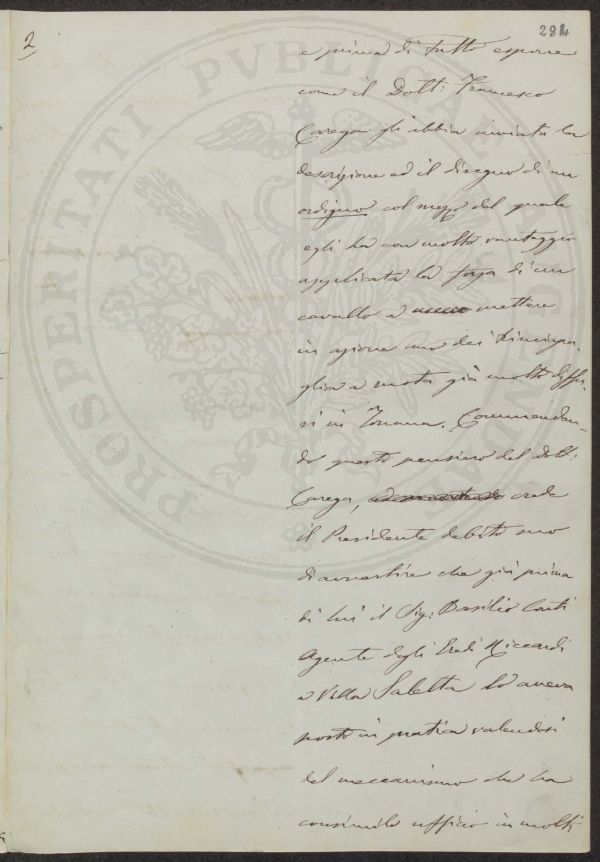 2
284
e prima di tutto esporre
come il Dott: Francesco
Carega gli abbia inviata la
descrizione ed il disegno di un
ordigno col mezzo del quale
egli ha con molto vantaggio
applicata la forza di un
cavallo a mettere
in azione uno dei trincia-
paglia a ruota già molto diffu-
si in Toscana. Commendan-
do questo pensiero del Dott:
Carega, crede
il Presidente debito suo
di avvertire che già prima
di lui il Sig: Basilio Conti
Agente degli Eredi Riccardi
a Villa Saletta lo aveva
posto in pratica valendosi
del meccanismo che ha
consimile ufficio in molti
PROSPERITATI PVBLICAE AVGENDAE